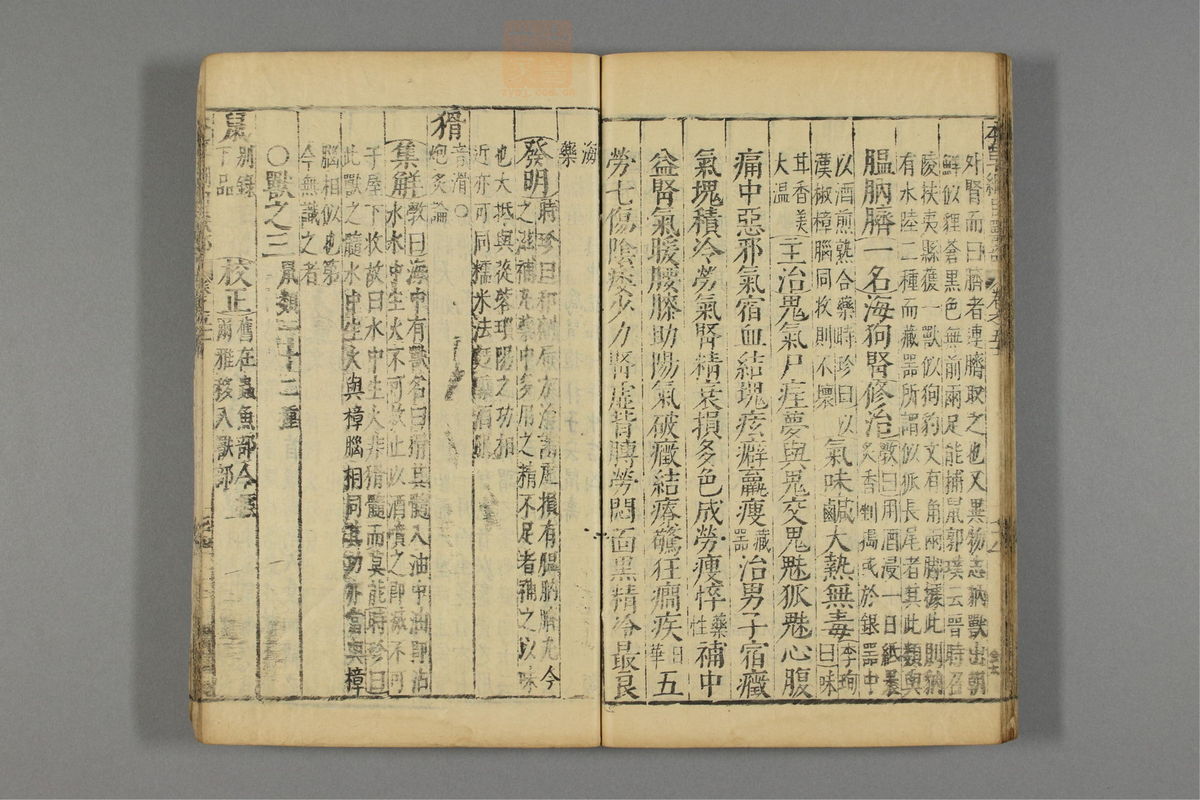 外腎而曰臍者連臍取之也又異物志豽獸出朝
鮮似貍蒼黑色無前兩足能捕鼠郭璞云晉時召
陵扶夷縣獲一獸似狗豹文有角兩脚據此則豽
有水陸二種而藏器所謂似狐長尾者其此類與
膃肭臍一名海狗腎修治
斆曰用酒浸一日紙裹
炙香剉搗或於銀器中
以酒煎熟合藥時珍曰以
漢椒樟腦同收則不壞
氣味鹹大熱無毒
李珣
曰味
甘香美
大温
主治鬼氣尸疰夢與鬼交鬼魅狐魅心腹
痛中惡邪氣宿血結塊痃癖羸瘦
藏
器
治男子宿癥
氣塊積冷勞氣腎精衰損多色成勞瘦悴
藥
性
補中
益腎氣暖腰膝助陽氣破癥結療驚狂癎疾
日
華
五
勞七傷陰痿少力腎虛背膊勞悶面黑精冷最良
海
藥
發明
時珍曰和劑局方治諸虛損有膃肭臍丸今
之滋補丸藥中多用之精不足者補之以味
也大抵與蓯蓉瑣陽之功相
近亦可同糯米法麴釀酒服
猾
音滑○
炮炙論
集解
斆曰海中有獸名曰猾其髓入油中油即沾
水水中生火不可救止以酒噴之即㓕不可
于屋下收故曰水中生火非猾髓而莫能時珍曰
此獸之髓水中生火與樟腦相同其功亦當與樟
腦相似也第
今無識之者
○獸之三
鼠類一十二種
鼠
別錄
下品
校正
舊在蟲魚部今
爾雅移入獸部